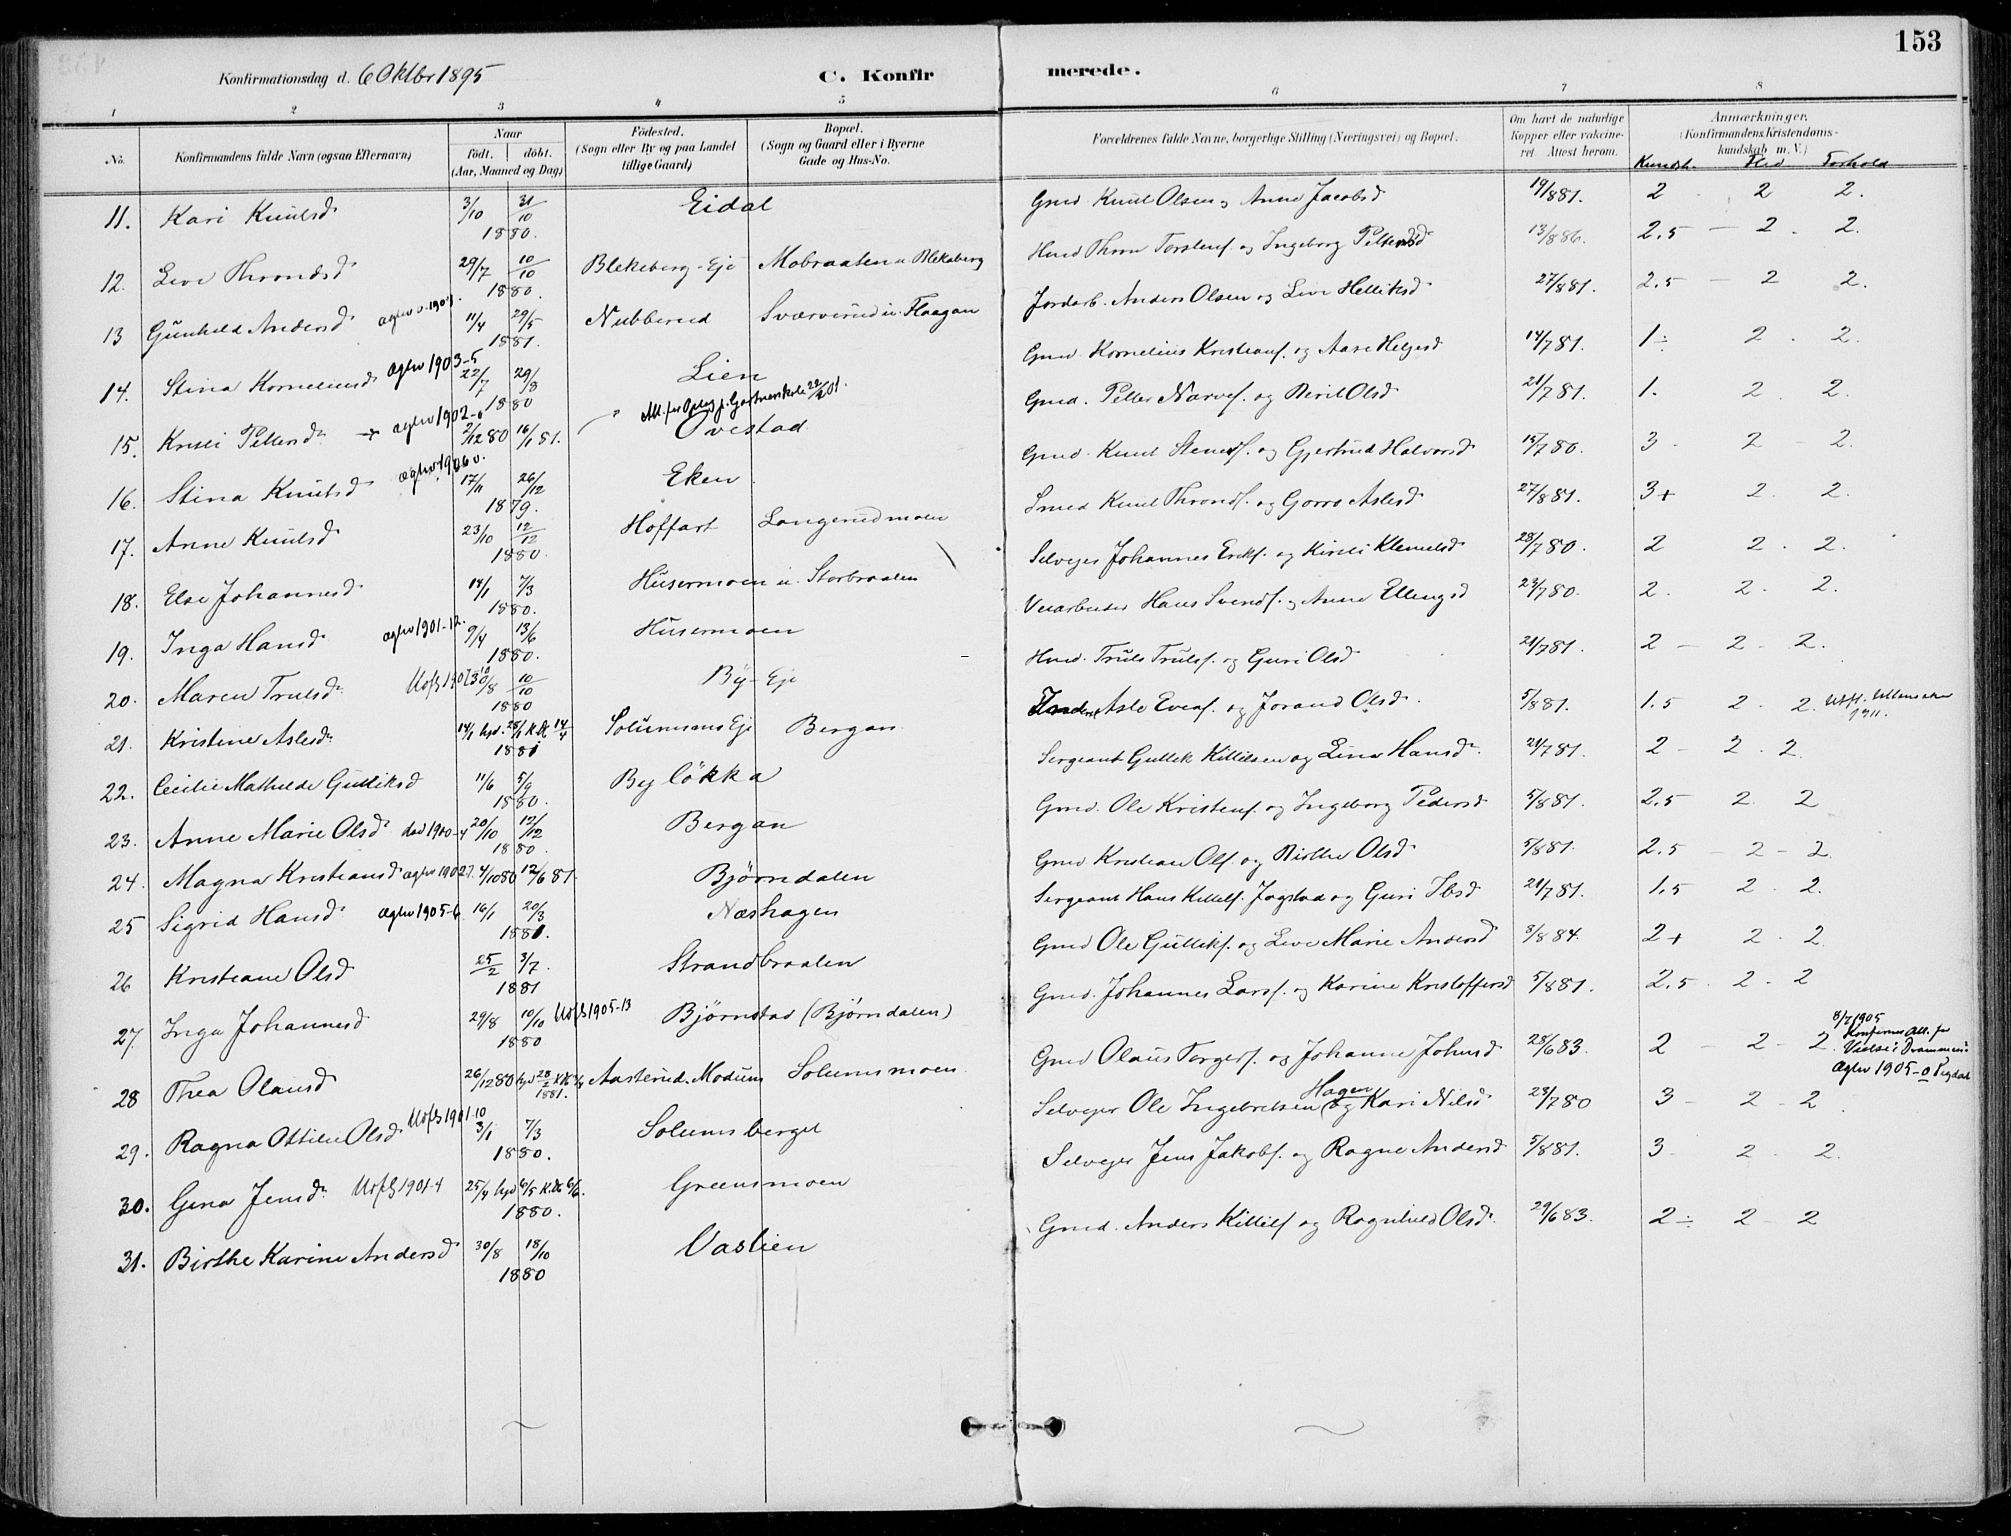 153
Konfirmationsdag d. 6 Oktbr 1895 C. Konfirmerede.
1 2 3 4 5 6 7 8
No. Konfirmandens fulde Navn (ogsaa Efternavn) Naar födt. döbt. (Aar, Maaned og Dag) Födested. (Sogn eller By og paa Landet tillige Gaard) Bopæl. (Sogn og Gaard eller i Byerne Gade og Hus-No. Forældrenes fulde Navne, borgerlige Stilling (Næringsvei) og Bopæl. Om havt de naturlige Kopper eller vakcineret. Attest herom. Anmærkninger. (Konfirmandens Kristendomskundskab m. V.)
Kundsk. Flid Forhold
11. Kari Knutsd 3/10 31/10 1880. Eidal Gmd Knut Olsen og Anne Jacobsd 19/8 81. 2 - 2 2.
12. Live Throndsd 29/7 10/10 1880. Blekeberg-Eje Mobraaten u. Blekeberg Hmd Thron Torstens. og Ingeborg Pettersd 13/8 86. 2.5 - 2. 2.
13 Gunhild Andersd 11/4 29/5 1881. Nubberud Sværverud u. Flaagan Jordarb. Anders Olsen og Live Helliksd 27/8 81. 2.5 - 2 2.
14. Stina Korneliusd aglev 1903-5 22/7 29/8 1880 Lien Gmd. Kornelius Kristians. og Aase Helgesd 14/7 81. 1 ÷ 2. 2.
15. Kristi Pettersd aglev 1902-6 2/12 80 16/1 81. Ovestad Gmd. Petter Narves. og Berit Olsd 21/7 81. 1. 2 2.
16. Stina Knutsd 17/11 26/12 1879. Eken Gmd. Knut Stens. og Gjertrud Halvorsd 15/7 80. 3 - 2 - 2.
17. Anne Knutsd 23/10 12/12 1880. Hoffart Langerudmoen Smed Knut Thronds. og Gorro Aslesd 27/8 81. 3+ 2. 2.
18. Else Johannesd 14/1 7/3 1880. Husermoen u. Storbraaten Selvejer Johannes Eriks. og Kirsti Klemetsd 28/7 80. 2 2. 2.
19. Inga Hansd aglev 1901-12. 9/4 13/6 1880. Husermoen Veiarbeider Hans Svends. og Anne Ellingsd 23/7 80. 2. 2. 2.
20. Maren Trulsd 30/8 10/10 1880 By-Eje Hmd. Truls Truls. og Guri Olsd 21/7 81. 2 - 2. 2.
21. Kristine Aslesd 14/1 hjd. 25/1 K.d. 14/4 1881 Solumsms Eje Bergan Asle Evens. og Jorand Olsd. 5/8 81. 1.5 2. 2. Utfl. Ullensaker 1911.
22. Cecilie Mathilde Gulliksd 11/6 5/9 1880. By lökka Sergeant Gullik Killilsen og Lina Hansd 21/7 81. 2 - 2. 2.
23. Anne Marie Olsd død 1900-4 20/10 12/12 1880. Bergan Gmd. Ole Kristens. og Ingeborg Pedersd 5/8 81. 2.5 2. 2
24. Magna Kristiansd aglev 1902-7. 4/10 80 12/6 81. Bjørndalen Gmd Kristian Ols. og Birthe Olsd 5/8 81. 2.5 - 2 - 2.
25 Sigrid Hansd aglev 1905-6 16/1 20/3 1881. Næshagen Sergeant Hans Killils. Jogstad og Guri Ibsd 21/7 81. 1.5 2. 2.
26 Kristiane Olsd 25/2 3/7. 1881 Strandbraaten Gmd Ole Gulliks. og Live Marie Andersd 3/8 84. 2+ 2. 2
27. Inga Johannesd 29/8 10/10 1880 Utfl 1905-13 Bjørnstad (Bjørndalen) Gmd. Johannes Lars. og Karine Kristoffersd 5/8 81. 2.5. 2. 2
28 Thea Olausd 26/12 80 hjd 28/2 1881. Aasterud. Modum Solumsmoen Gmd Olaus Torgers. og Johanne Johnsd 28/6 83. 2 - 2 - 2 8/7 1905 Konfirms Att. for Vielse i Drammen. Aglev 1905-0 Sigdal
29. Ragna Ottilie Olsd Utfl 1901-10 3/1 7/3 1880. Solumsberget Selvejer Ole Ingebretsen Hagen og Kari Nilsd 28/7 80 3 - 2 - 2
30. Gina Jensd Utfl 1901-4 25/4 hjd 6/5 K.d. 6/6. 1880. Greensmoen Selvejer Jens Jakobs. og Ragne Andersd 5/8 81. 3 - 2. 2.
31. Birthe Karine Andersd 30/8 18/10 1880 Vaslien Gmd. Anders Killils. og Ragnhild Olsd 29/6 83. 2 ÷ 2 - 2